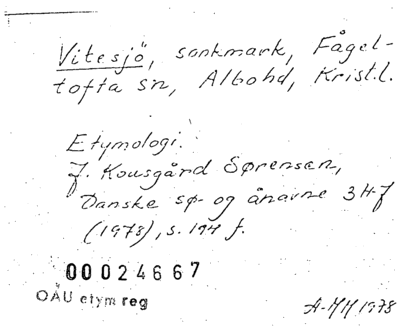 Vitesjö, sankmark, Fågel-
tofta sn, Albohd, Krist.l.
Etymologi:
J. Kousgård Sørensen,
Danske sø- og ånavne 3 H-J
(1978), s. 194 f.
00024667
OAU etym reg
A-MH 1978